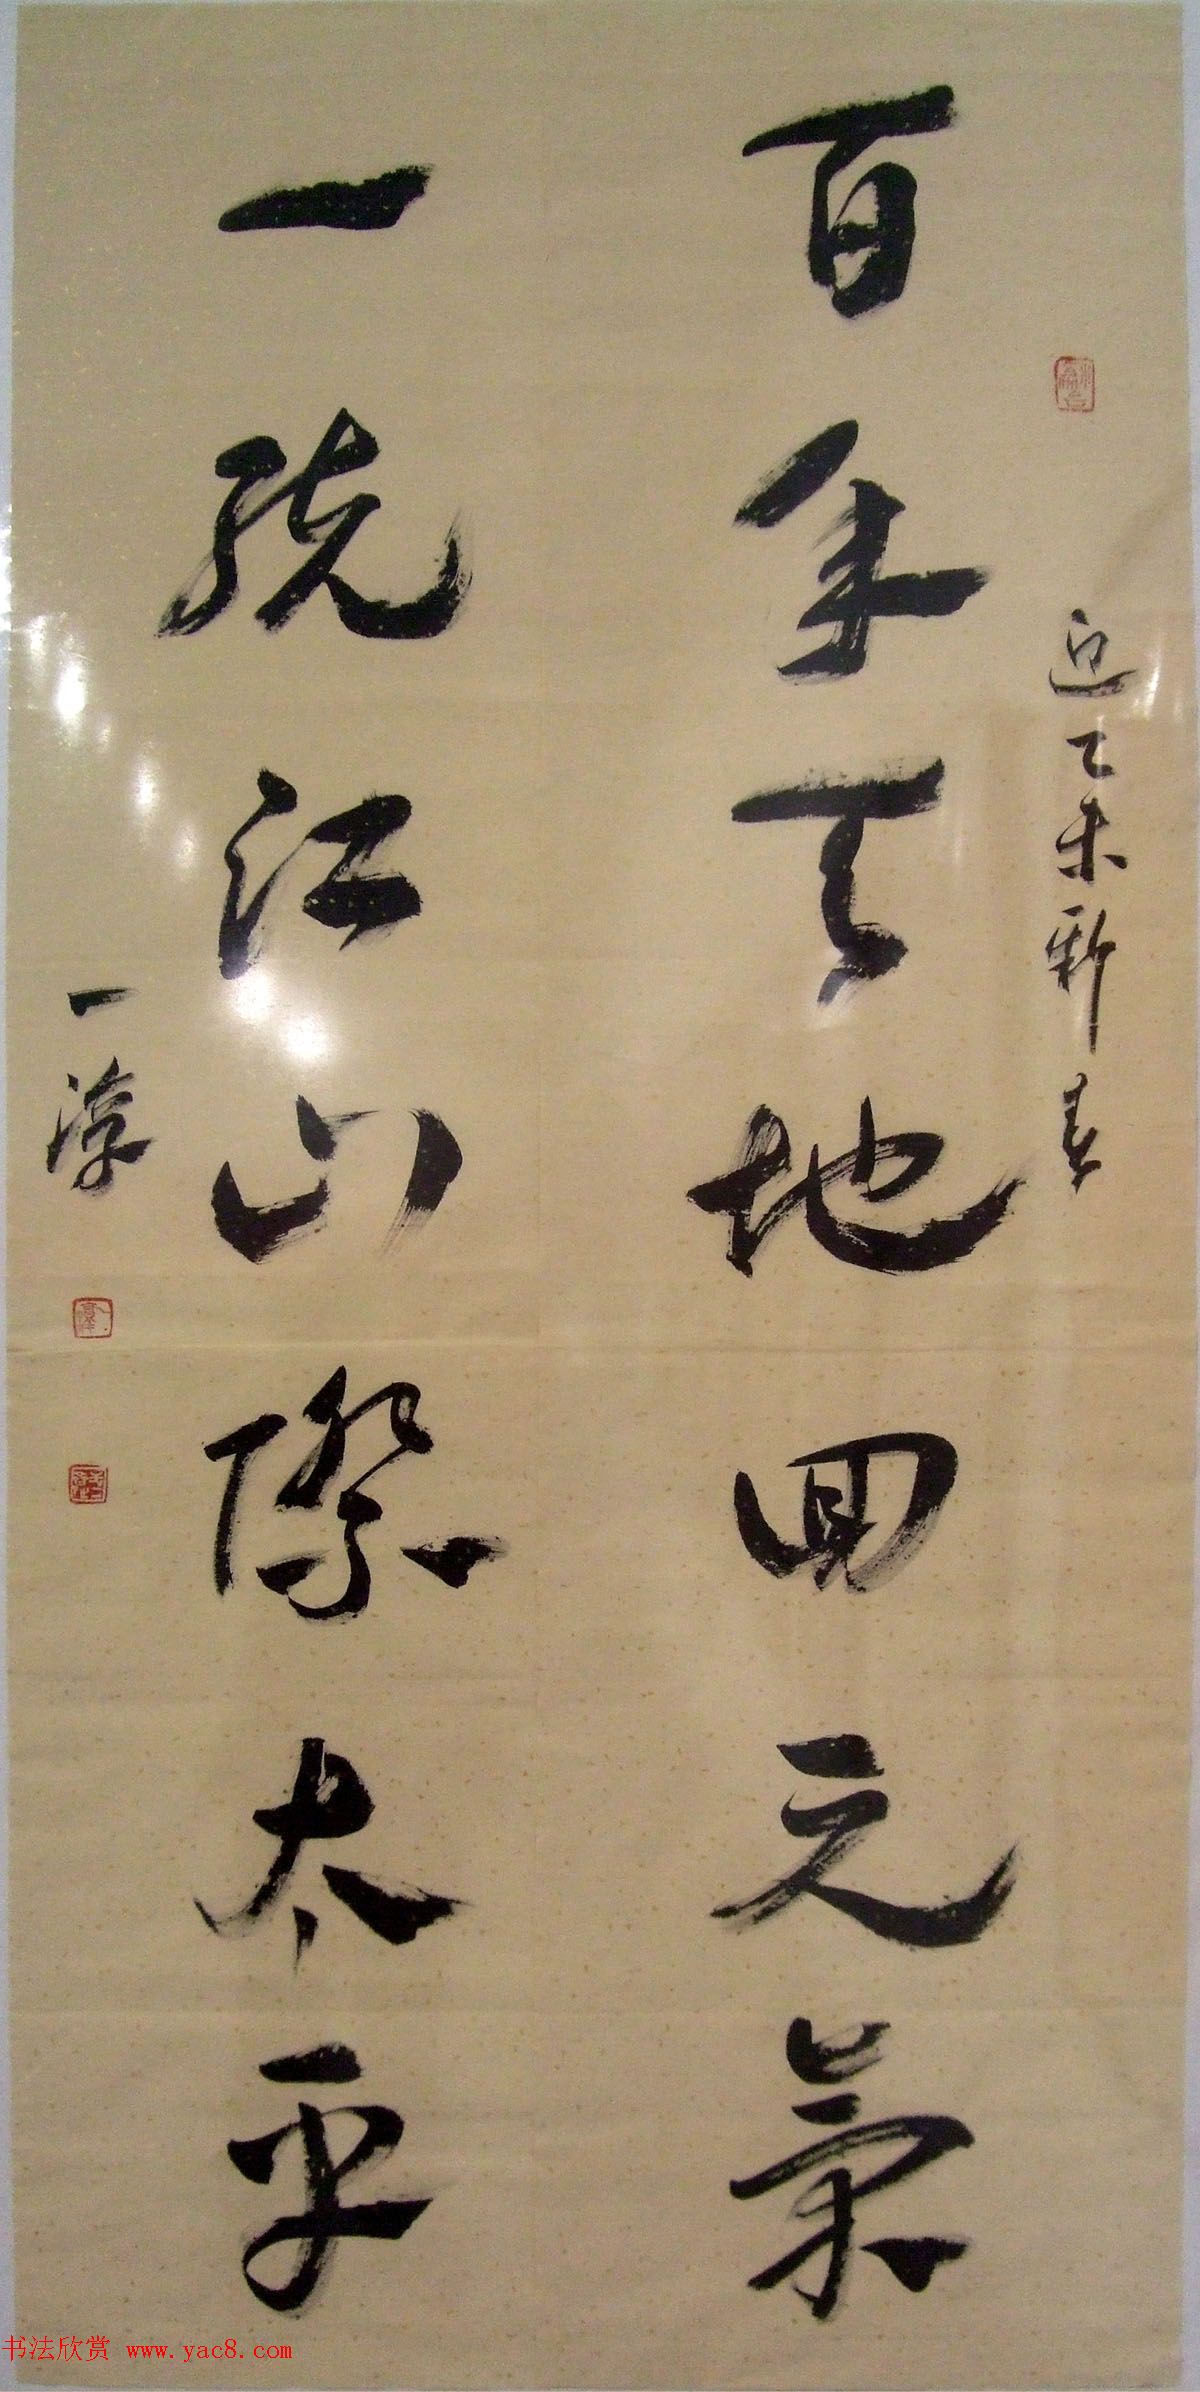 迎乙未新春
百年天地回元氣
一統江山際太平
一淳
书法欣赏 www.yac8.com